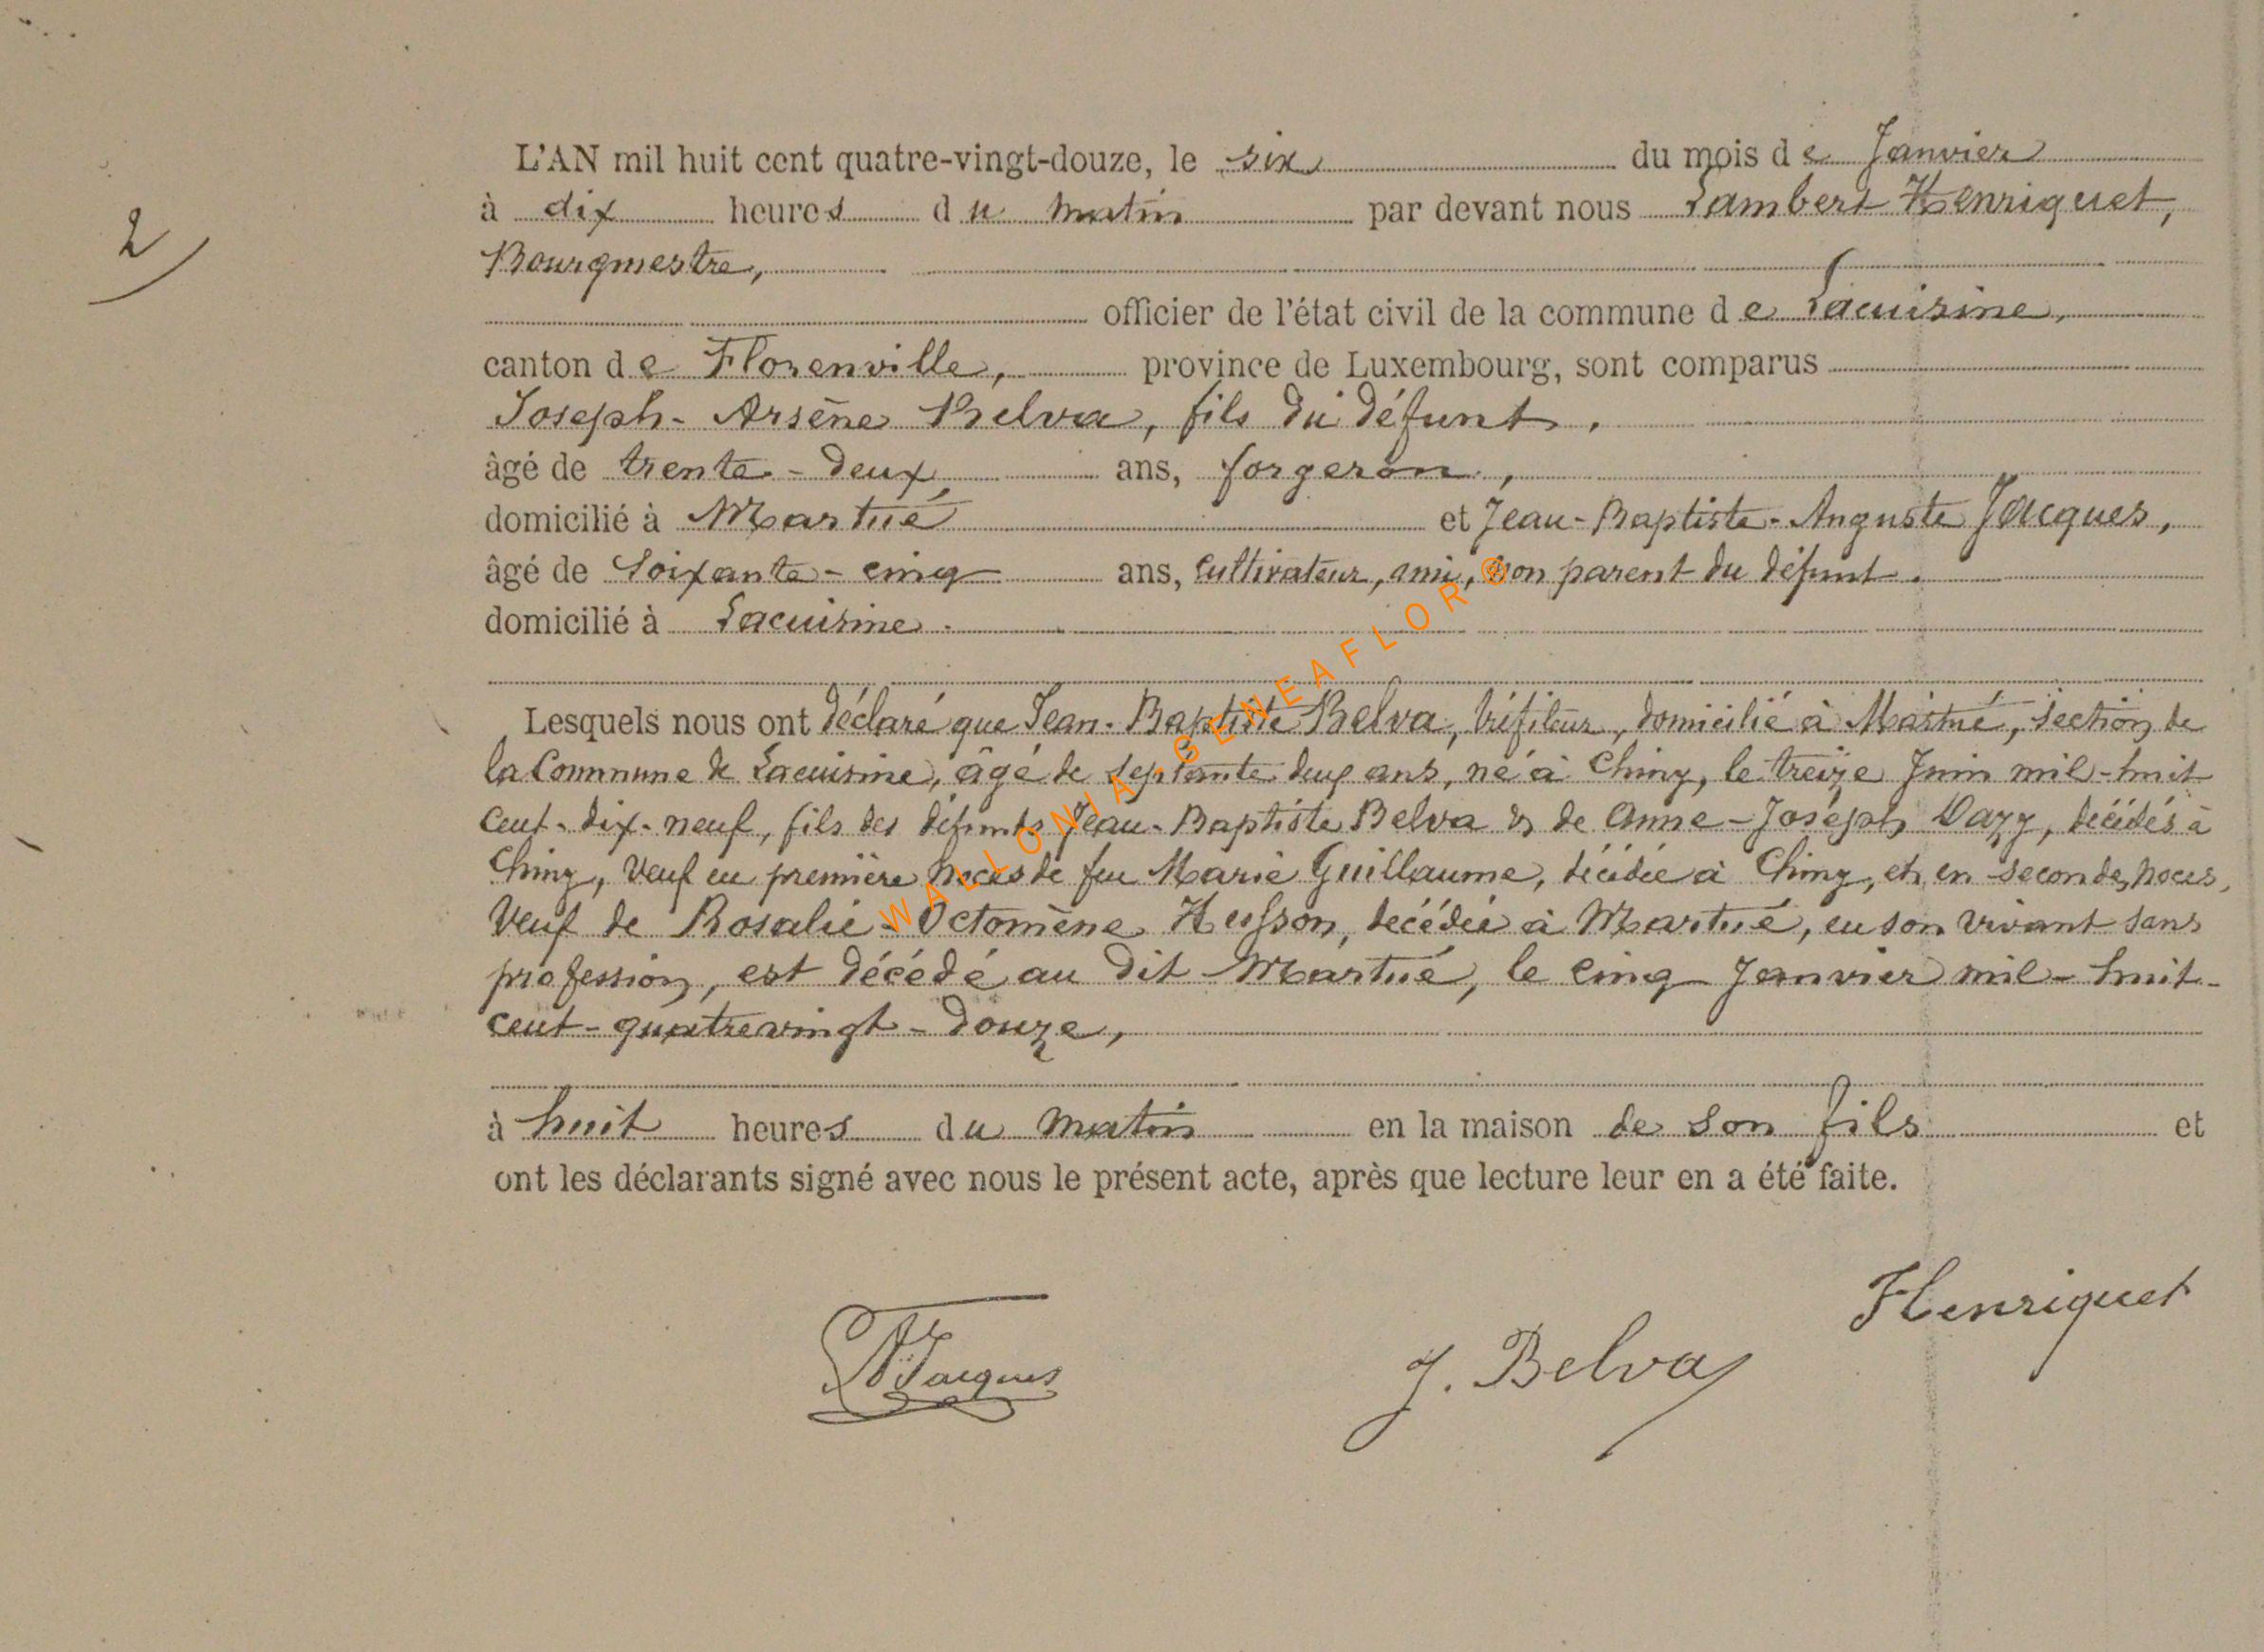 2)
L'AN mil huit cent quatre-vingt-douze, le six du mois de Janvier
à dix heures du matin par devant nous Lambert Henriquet,
Bourgmestre,
officier de l'état civil de la commune de Lacuisine,
canton de Florenville, province de Luxembourg, sont comparus
Joseph-Arsène Belva, fils du défunt,
âgé de trente-deux ans, forgeron,
domicilié à Martué et Jean-Baptiste-Auguste Jacques,
âgé de Soixante-cinq ans, Cultivateur, ami, non parent du défunt.
domicilié à Lacuisine.
Lesquels nous ont déclaré que Jean-Baptiste Belva, tréfileur, domicilié à Martué, section de
la Commune de Lacuisine, âgé de septante deux ans, né à Chiny, le treize Juin mil-huit
cent-dix-neuf, fils des défunts Jean-Baptiste Belva & de Anne-Joseph Dazy, décédés à
Chiny, Veuf en première Noces de feu Marie Guillaume, décédée à Chiny, et en secondes noces,
Veuf de Rosalie-Octomène Husson, décédée à Martué, en son vivant sans
profession, est décédé au dit Martué, le cinq Janvier mil-huit-
cent-quatrevingt-douze,
à huit heures du matin en la maison de son fils et
ont les déclarants signé avec nous le présent acte, après que lecture leur en a été faite.
Henriquet
J. Belva
Jacques
WALLONIA-GENEAFLOR®